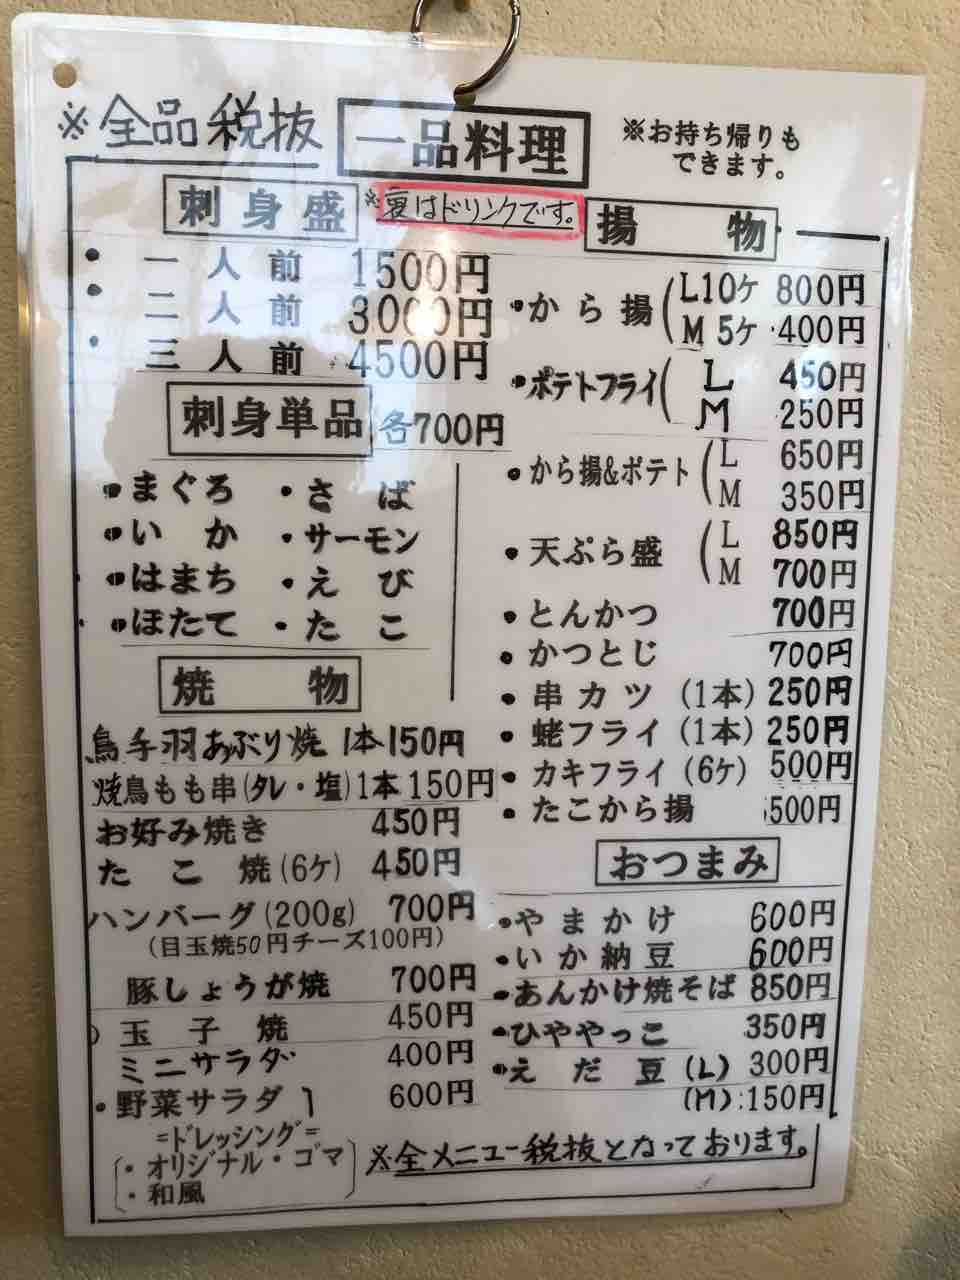 ※全品税抜
一品料理
※お持ち帰りも
できます。
刺身盛
※裏はドリンクです。
・一人前 1500円
・二人前 3000円
・三人前 4500円
刺身単品 各700円
・まぐろ ・さば
・いか ・サーモン
・はまち ・えび
・ほたて ・たこ
焼物
鳥手羽あぶり焼 1本150円
焼鳥もも串(タレ・塩)1本150円
お好み焼き 450円
たこ焼(6ケ) 450円
ハンバーグ(200g) 700円
(目玉焼50円チーズ100円)
豚しょうが焼 700円
玉子焼 450円
ミニサラダ 400円
・野菜サラダ 600円
=ドレッシング=
・オリジナル・ゴマ
・和風
揚物
・から揚 L10ケ 800円
M 5ケ 400円
・ポテトフライ L 450円
M 250円
・から揚&ポテト L 650円
M 350円
・天ぷら盛 L 850円
M 700円
・とんかつ 700円
・かつとじ 700円
・串カツ (1本) 250円
・蛯フライ (1本) 250円
・カキフライ (6ケ) 500円
・たこから揚 500円
おつまみ
・やまかけ 600円
・いか納豆 600円
・あんかけ焼そば 850円
・ひややっこ 350円
・えだ豆 (L) 300円
(M):150円
※全メニュー税抜となっております。